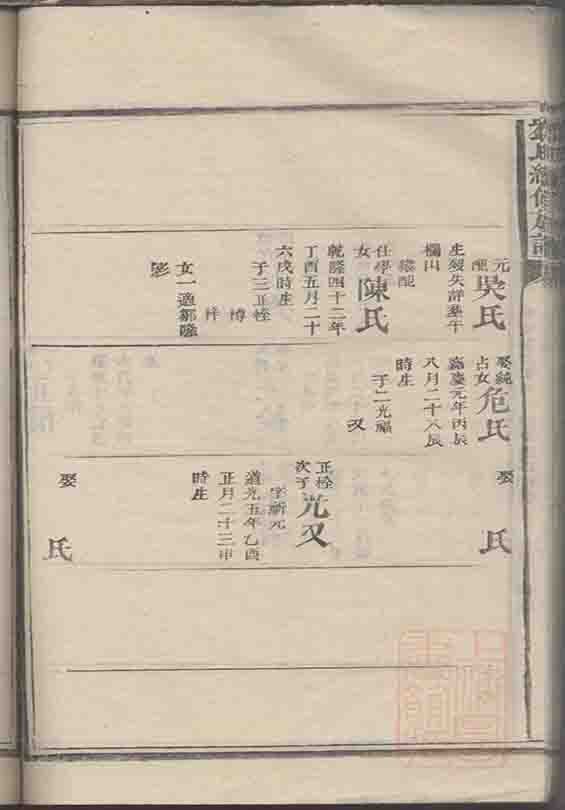 氏續修族譜
元配吳氏
生歿失詳葬午
欄凹
繼配
仕學女陳氏
乾隆四十二年
丁酉五月二十
六戌時生
子三正栓
博
梓
女一適鄒隆
彰
娶純占女危氏
嘉慶元年丙辰
八月二十八辰
時生
子二光福
又
娶 氏
正栓次子光又
字新元
道光五年乙酉
正月二十三申
時生
娶 氏
上海圖書館藏